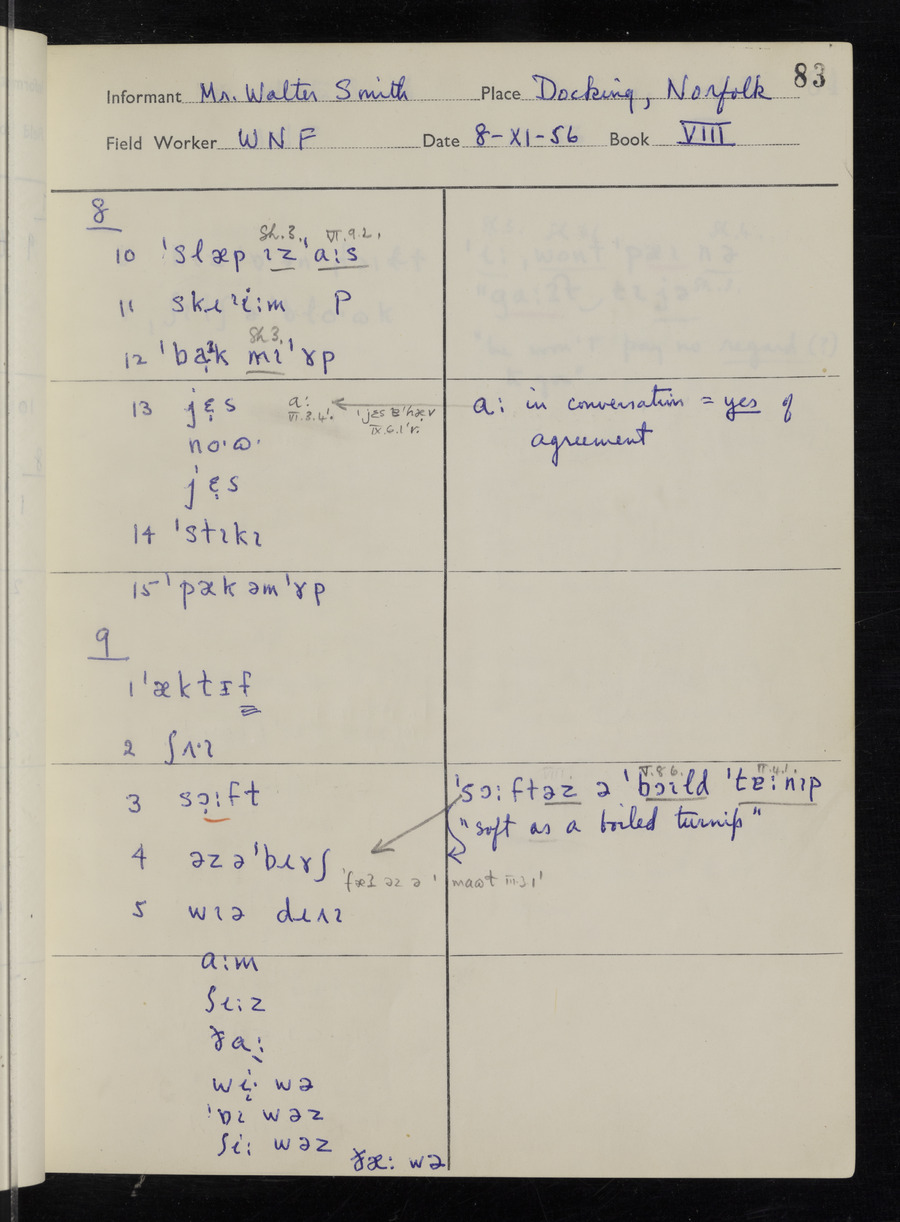 83
Informant Mr. Walter Smith Place Docking, Norfolk
Field Worker W N F Date 8-XI-56 Book VIII
8
Sh.3. VI.9.2.
10 ˈslæp ɪz ˈaːs
11 skɹiːm P
Sh.3.
12 ˈbak mɪ ˈɤp
13 jɛs aː ˈjɛs ɐ ˈhæv aː in conversation = yes of
VI.3.4. IX.6.1
noˑɷˑ agreement
jɛs
14 ˈstɪkɪ
15 ˈpæk əm ˈɤp
9
1 ˈæktɪf
2 ʃʌˑɪ
V.8.6. II.4.1.
3 sɔːft ˈsɔːftəz ə ˈbɔɪld ˈtɐːnɪp
"soft as a boiled turnip"
4 əz ə ˈbɹɤʃ
əz ə ˈmaɷt III.3.1
5 wɪə dɹʌɪ
aːm
ʃiːz
ðaː
wiˑ wə
wəz
ʃiː wəz
ðæː wə